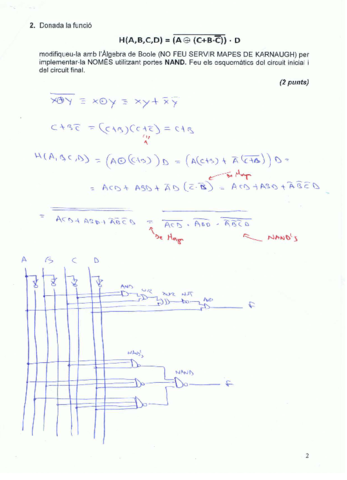 2. Donada la funció
H(A,B,C,D) = \overline{(A ⊕ (C+B·\overline{C}))} · D
modifiqueu-la amb l'Àlgebra de Boole (NO FEU SERVIR MAPES DE KARNAUGH) per
implementar-la NOMÉS utilitzant portes NAND. Feu els esquemàtics del circuit inicial i
del circuit final.
(2 punts)
\overline{x⊕y} ≡ x⊙y ≡ xy + \overline{x}\,\overline{y}
C+B\overline{C} = (C+B)(C+\overline{C}) = C+B
H(A,B,C,D) = (A⊙(C+B)) D = (A(C+B) + \overline{A}(\overline{C+B})) D =
De Morgan
= ACD + ABD + \overline{A}D(\overline{C}·\overline{B}) = ACD + ABD + \overline{A}\overline{B}\overline{C}D
= \overline{\overline{ACD + ABD + \overline{A}\overline{B}\overline{C}D}} = \overline{\overline{ACD} · \overline{ABD} · \overline{\overline{A}\overline{B}\overline{C}D}}
De Morgan NAND's
A B C D
AND
F
NANDs
NANDs
F
2